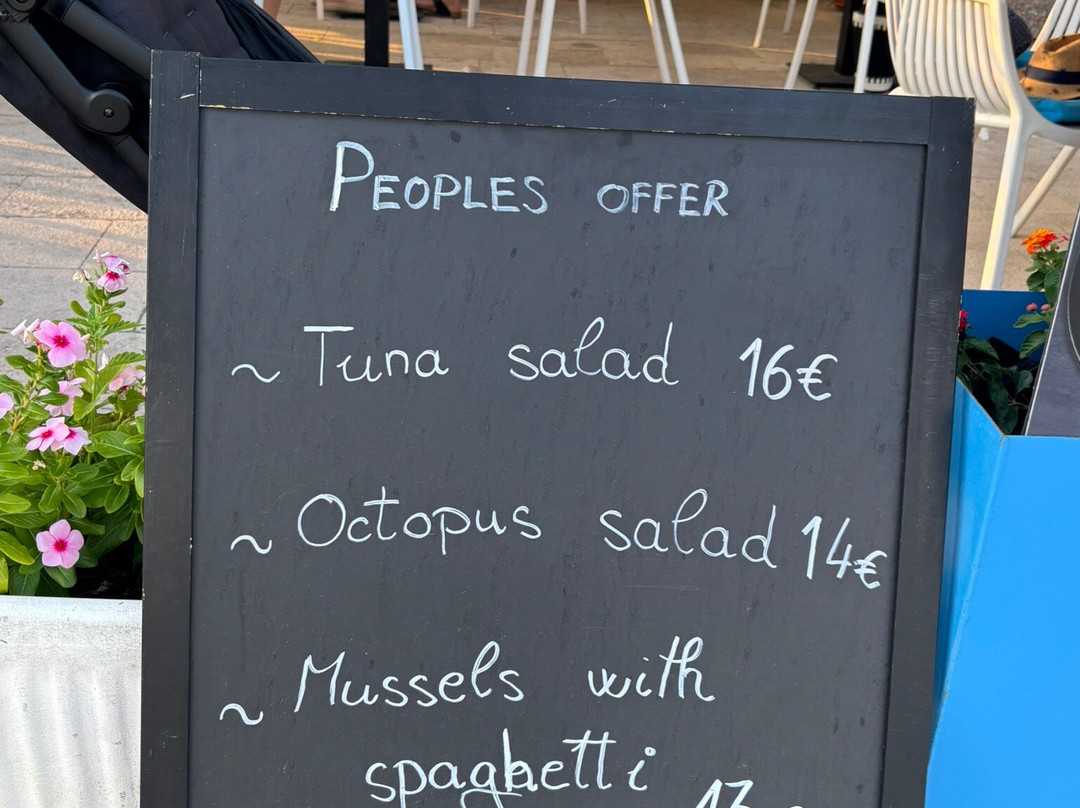 PEOPLES OFFER
~ Tuna salad 16€
~ Octopus salad 14€
~ Mussels with
spaghetti